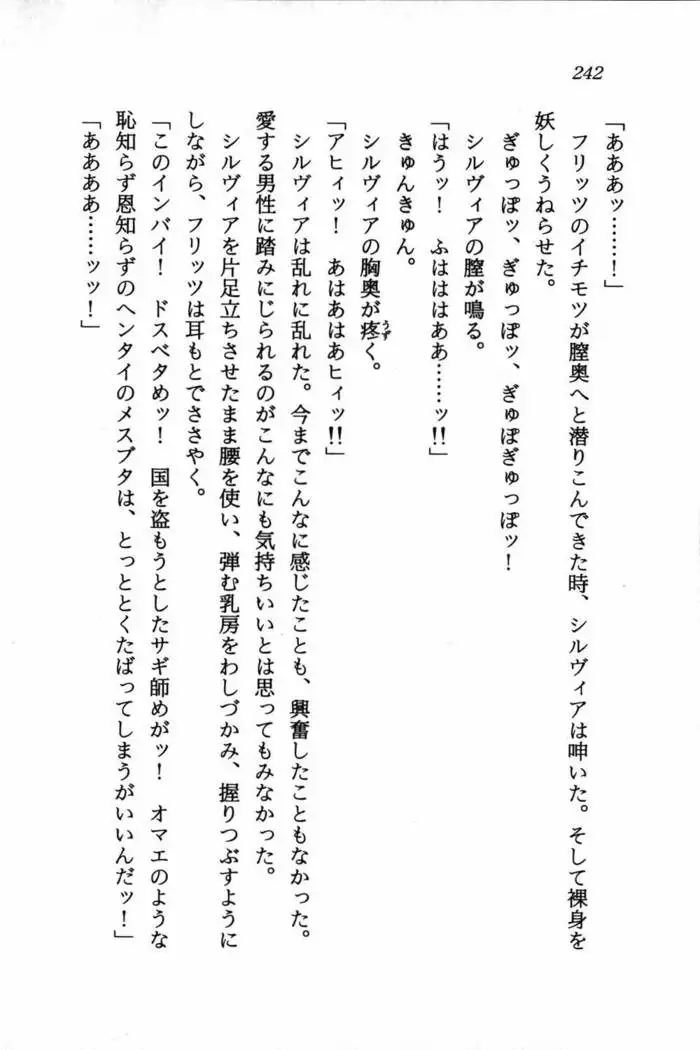 242
「あああッ……！」
　フリッツのイチモツが膣奥へと潜りこんできた時、シルヴィアは呻いた。そして裸身を
妖しくうねらせた。
　ぎゅっぽッ、ぎゅっぽッ、ぎゅぽぎゅっぽッ！
　シルヴィアの膣が鳴る。
「はうッ！　ふはははああ……ッ!!」
　きゅんきゅん。
　シルヴィアの胸奥が疼（うず）く。
「アヒィッ！　あはあはあヒィッ!!」
　シルヴィアは乱れに乱れた。今までこんなに感じたことも、興奮したこともなかった。
愛する男性に踏みにじられるのがこんなにも気持ちいいとは思ってもみなかった。
　シルヴィアを片足立ちさせたまま腰を使い、弾む乳房をわしづかみ、握りつぶすように
しながら、フリッツは耳もとでささやく。
「このインバイ！　ドスベタめッ！　国を盗もうとしたサギ師めがッ！　オマエのような
恥知らず恩知らずのヘンタイのメスブタは、とっととくたばってしまうがいいんだッ！」
「ああああ……ッッ！」